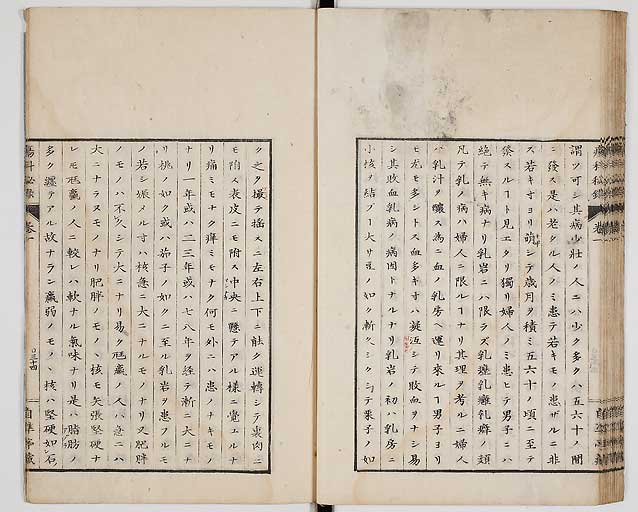 謂ツ可シ其病少壯ノ人ニハ少ク多クハ五六十ノ間
ニ發ス是ハ老タル人ノミ患テ若キモノ患ザルニ非
ズ若キ寸ヨリ萌シテ歳月ヲ積ミ五六十ノ頃ニ至テ
發スルート見エタリ獨リ婦人ノミ患ヒテ男子ニハ
絶テ無キ病ナリ乳岩ニハ限ラズ乳癰乳癖ノ類
凡テ乳ノ病ハ婦人ニ限ルーナリ其理ヲ考ルニ婦人
ハ乳汁ヲ釀ス爲ニ血ノ乳房ヘ運リ來ルー男子ヨリ
モ尤モ多シトス血多キ寸ハ凝沍シテ敗血ヲナシ易
シ其敗血乳病ノ病因トナルナリ乳岩ノ初ハ乳房ニ
小核ヲ結ブー大サ豆ノ如ク漸クミクシテ栗子ノ如
ク之ヲ撮テ搖スニ左右上下ニ能ク運轉シテ裏肉ニ
モ附ス表皮ニモ附ス中央ニ懸テアル樣ニ覺エルナ
リ痛ミモナク痒ミモナク何モ外ニハ患ノナキモノ
ナリ一年或ハ二三年或ハ七八年ヲ經テ漸ニ大ニナ
リ桃ノ如ク或ハ茄子ノ如クニ至ル乳岩ヲ患フルモ
ノ若シ娠ノル寸ハ核急ニ大ニナルモノナリ又肥胖
ノモノハ不久シテ大ニナリ易ク尩羸ノ人ハ急ニハ
大ニナラヌモノナリ肥胖ノモノハ核モ矢張堅硬ナ
レモ尩羸ノ人ニ較レハ軟ナル氣味ナリ是ハ脂肪ノ
多ク纒テアル故ナラン羸弱ノモノハ核ハ堅硬如石
瘍科秘録 卷一
三十四
自準亭藏